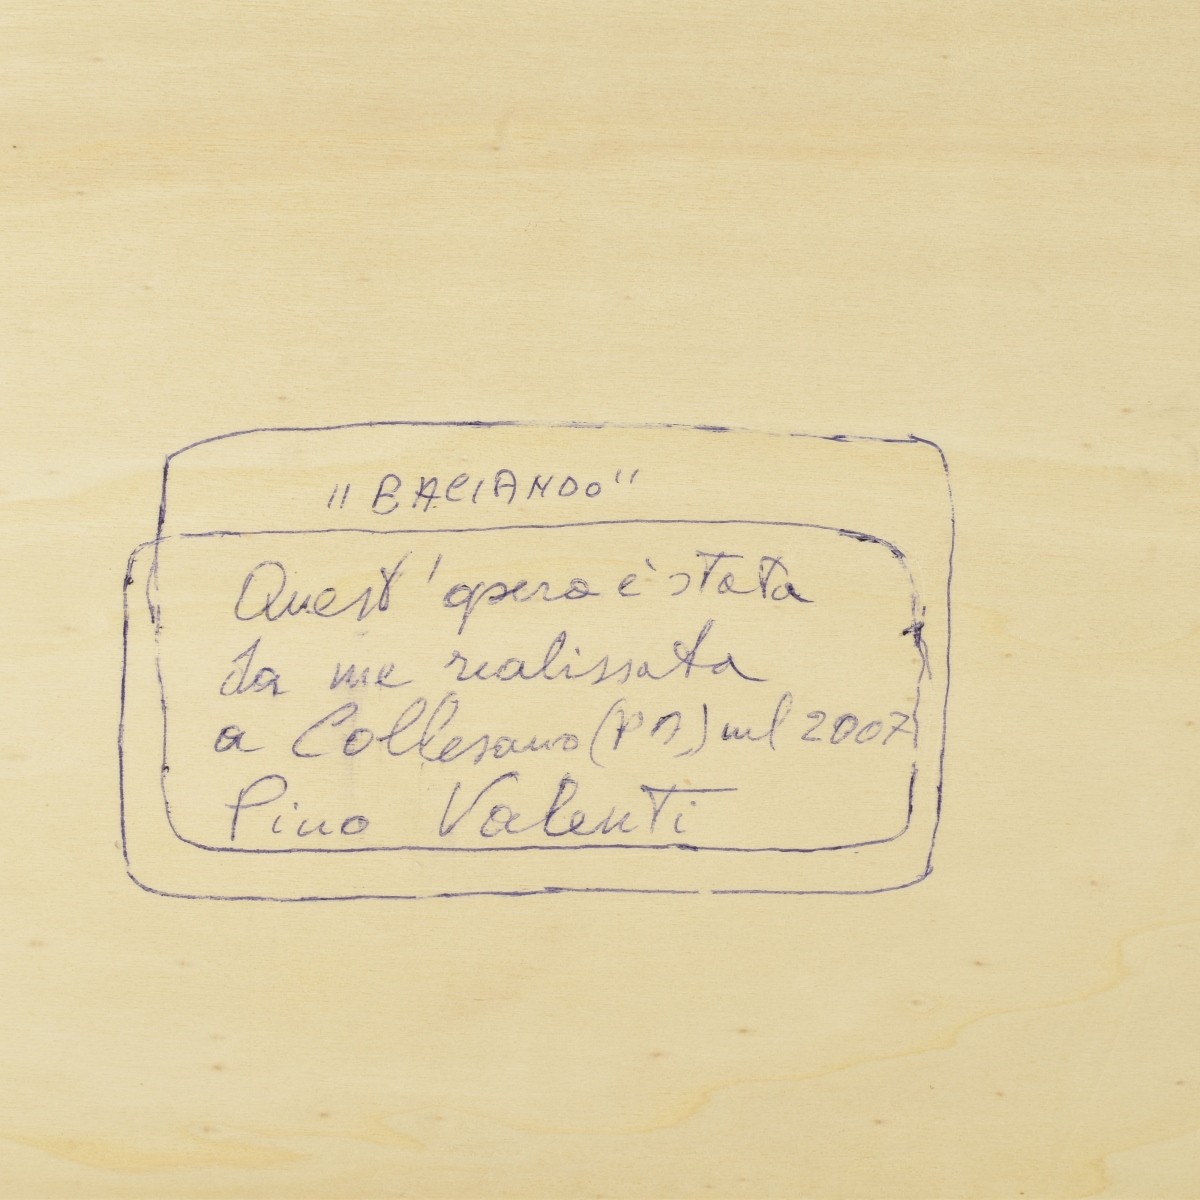 "BACIANDO"
Quest'opera è stata
da me realissata
a Collesano (PA) nel 2007
Pino Valenti